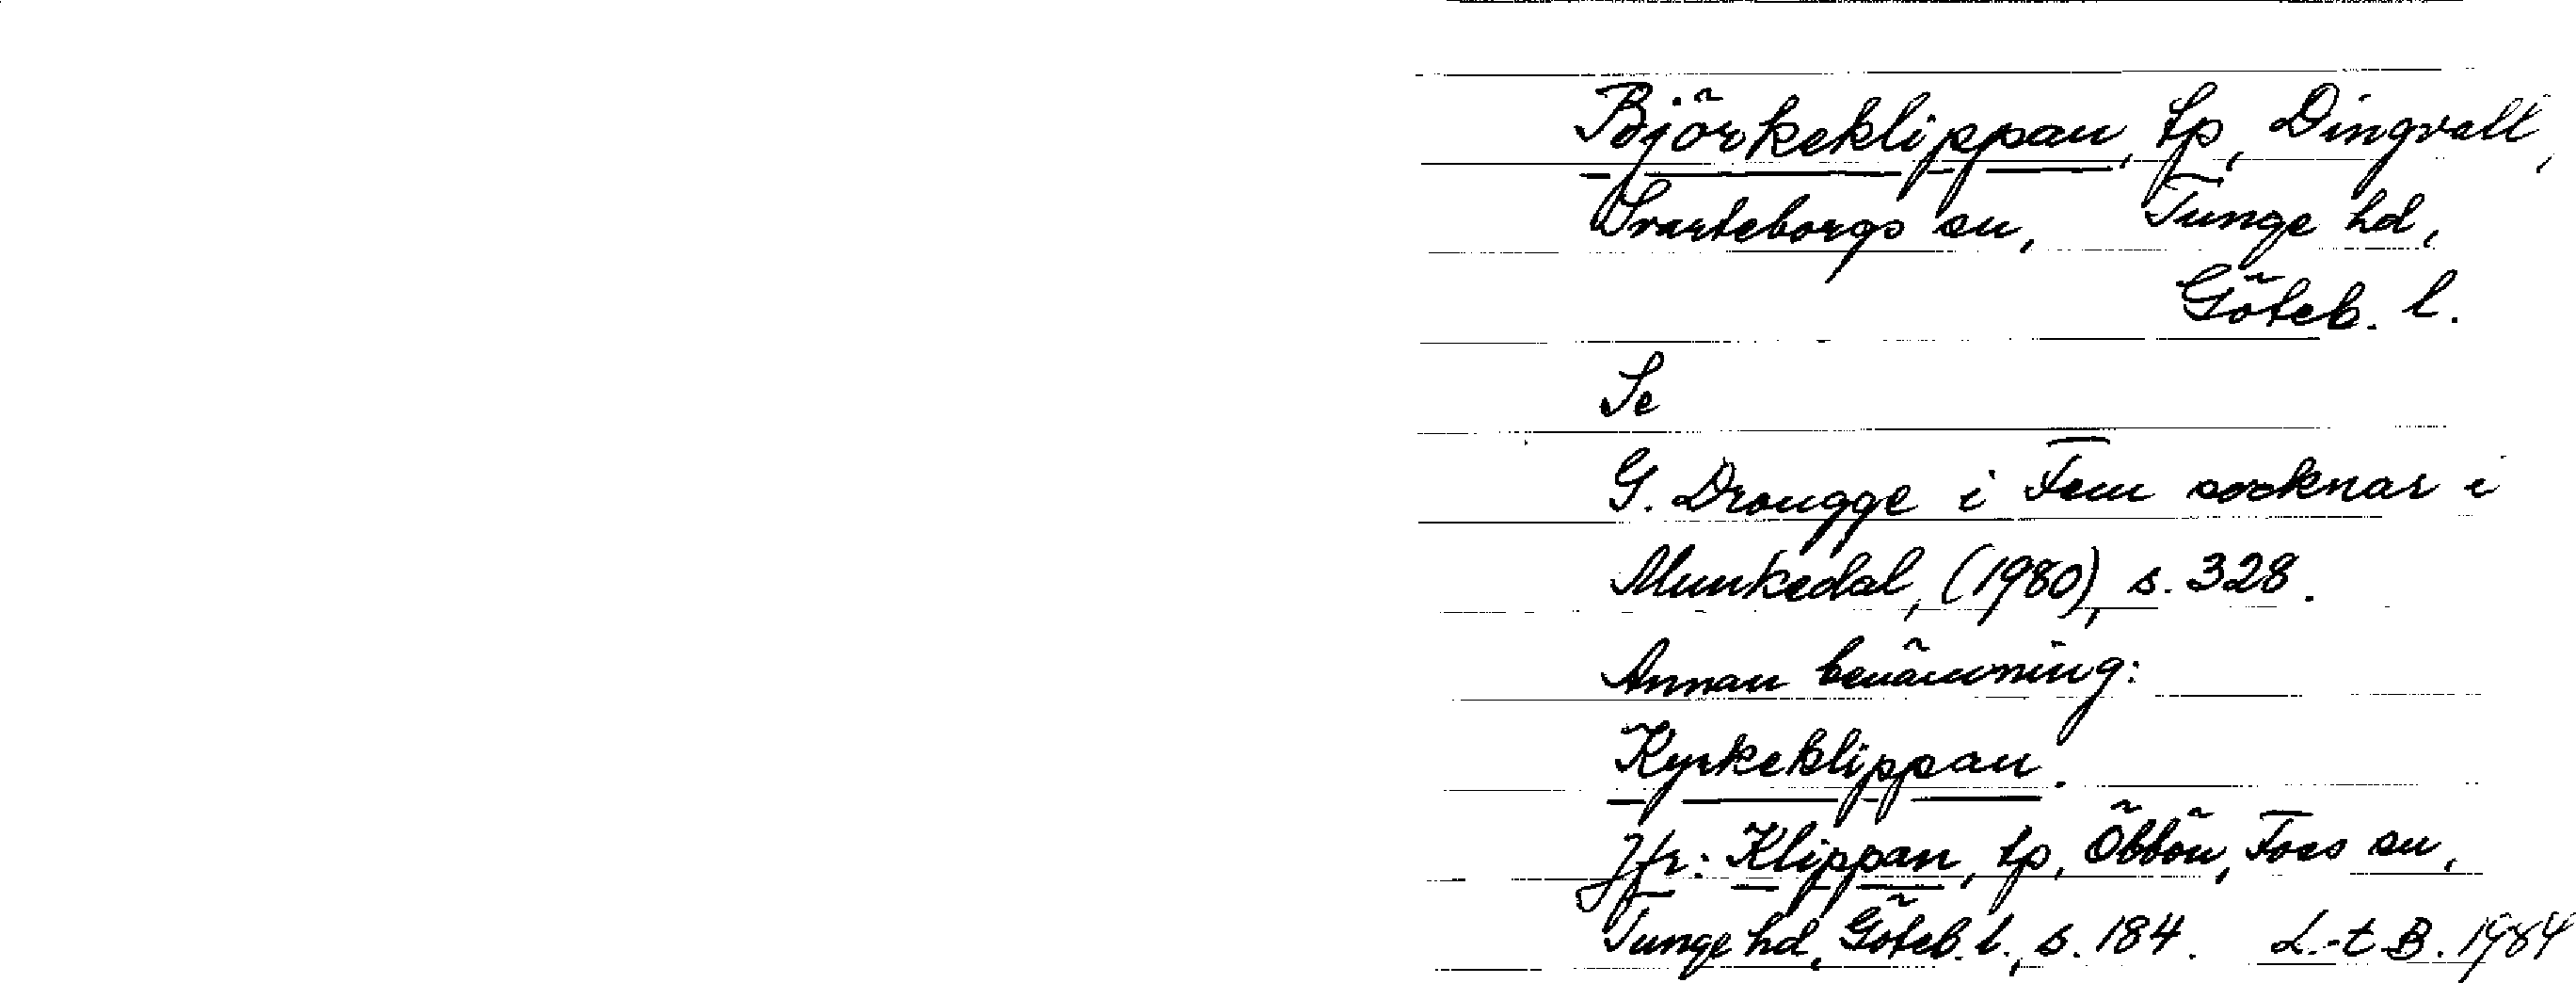 Björkeklippan, tp, Dingvall,
Svarteborgs sn, Tunge hd,
Göteb. l.
Se
G. Drougge i Fem socknar i
Munkedal, (1980), s. 328.
Annan benämning:
Kyrkeklippan.
Jfr: Klippan, tp, Öbbön, Foss sn,
Tunge hd, Göteb. l., s. 184. L.-t B. 1984